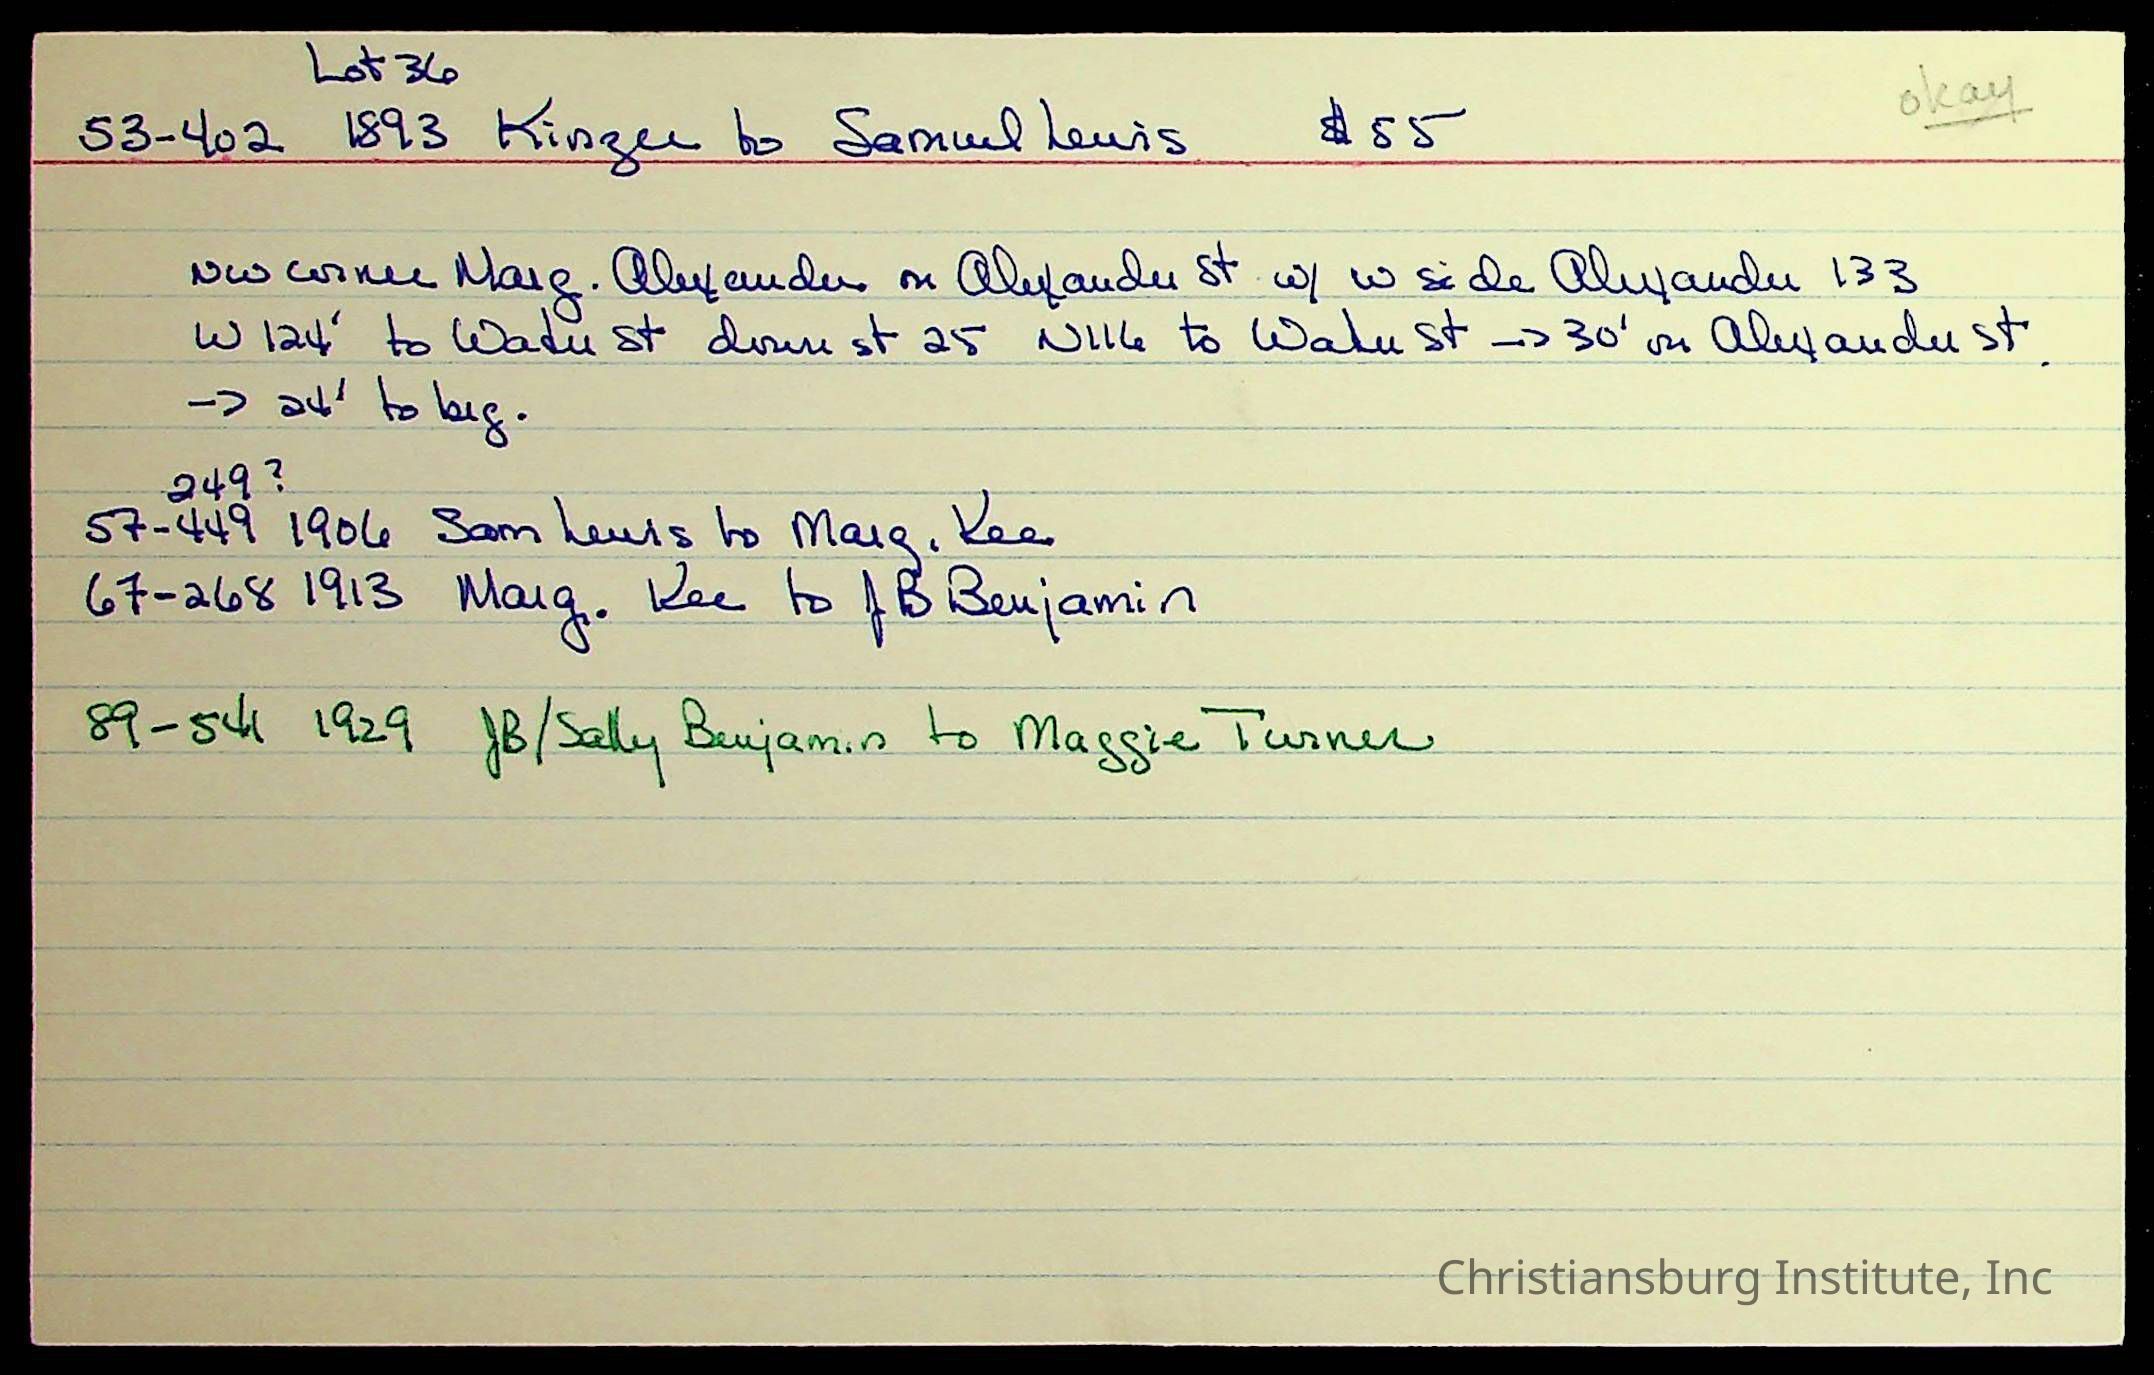 Lot 36
okay
53-402 1893 Kinzer to Samuel Lewis $55
NW corner Marg. Alexander on Alexander St w/ w side Alexander 133
W 124' to Water St down st 25 N116 to Water St -> 30' on Alexander St.
-> 24' to beg.
249?
57-449 1906 Sam Lewis to Marg. Kee
67-268 1913 Marg. Kee to JB Benjamin
89-541 1929 JB/Sally Benjamin to Maggie Turner
Christiansburg Institute, Inc